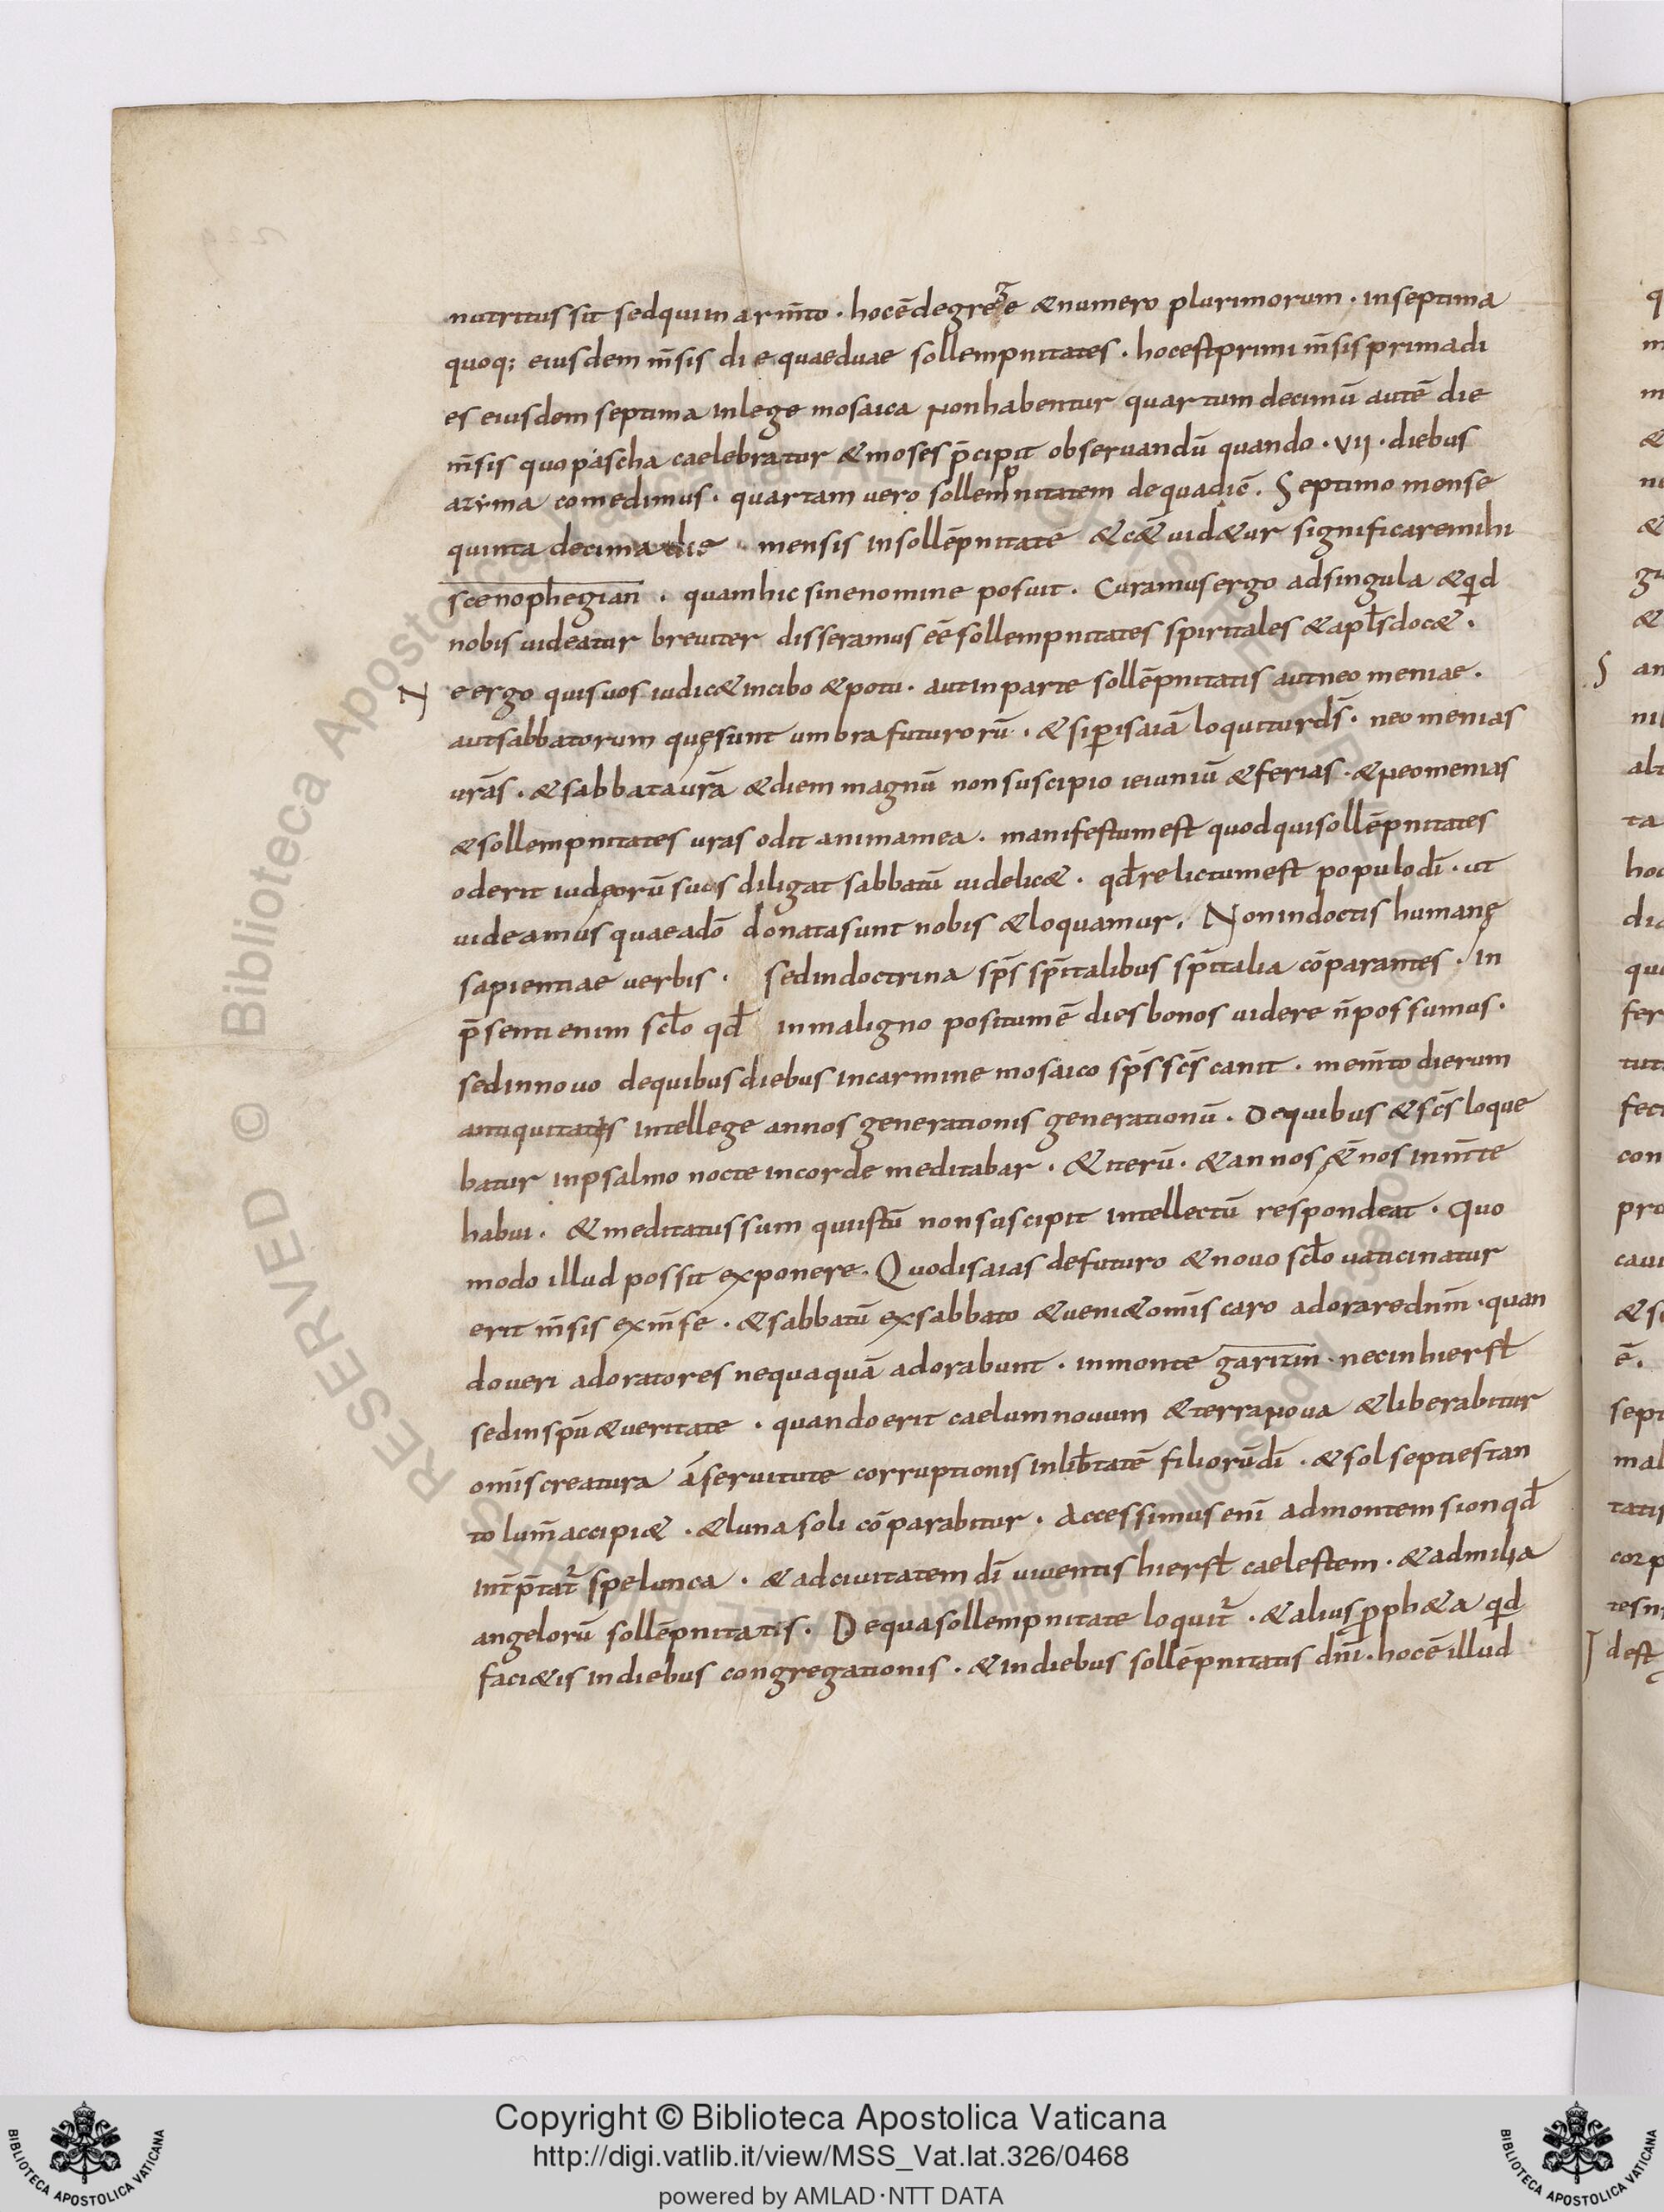 nutritus sit sed qui in arm̄to · hoc ē de grege & numero plurimorum · in septima
quoq; eiusdem m̄sis die quae duae sollempnitates · hoc est primi m̄sis prima di
es eiusdem septima in lege mosaica non habentur quartum decimū autē die
m̄sis quo pascha caelebratur & moses p̄cipit obseruandū quando · VII · diebus
azyma comedimus · quartam uero sollempnitatem de qua diē . Septimo mense
quinta decima die mensis in sollēpnitatē & c&̄ uid&ur significare mihi
scenophegian · quam hic sine nomine posuit . Curramus ergo ad singula & qid
nobis uideatur breuiter disseramus eē sollempnitates spiritales & apl̄s doc& .
N e ergo quis uos iudic& in cibo & potu · aut in parte sollēpnitatis aut neomeniae .
aut sabbatorum quę sunt umbra futurorū · & si p isaiā loquitur ds̄ · neomenias
urās · & sabbata urā & diem magnū non suscipio ieiuniū & ferias · & neomenias
& sollempnitates uras odit anima mea · manifestum est quod qui sollēpnitates
oderit iudęorū suas diligat sabbatū uidelic& · qd̄ relictum est populo dī · ut
uideamus quae a dō donata sunt nobis & loquamur . Non in doctis humanę
sapientiae uerbis · sed in doctrina sp̄s sp̄italibus sp̄italia cōparantes · in
p̄senti enim sclo qd̄ in maligno positum ē dies bonos uidere n̄ possumus ·
sed in nouo de quibus diebus in carmine mosaico sp̄s sc̄s canit · mem̄to dierum
antiquitatis intellege annos generationis generationū . De quibus & sc̄s loque
batur in psalmo nocte in corde meditabar · & iterū · & annos &̄nos in m̄te
habui · & meditatus sum qui istū non suscipit intellectū respondeat · Quo
modo illud possit exponere . Quod isaias de futuro & nouo sclo uaticinatur
erit m̄sis ex m̄se · & sabbatū ex sabbato & ueni& omīs caro adorare dnm̄ · quan
do ueri adoratores nequaquā adorabunt · in monte garitin · nec in hierusl̄
sed in spū & ueritate · quando erit caelum nouum & terra noua & liberabitur
omīs creatura a seruitute corruptionis in lib̄tatē filiorū dī · & sol septies tan
to lum̄ accipi& · & luna soli cōparabitur · Accessimus enī ad montem sion qd̄
int̄p̄tat̄ spelunca · & ad ciuitatem dī uiuentis hierusl̄ caelestem · & ad milia
angelorū sollēpnitatis . De qua sollempnitate loquit̄ · & alius pph&a qid
faci&is in diebus congregationis · & in diebus sollēpnitatis dnī · hoc ē illud
Copyright © Biblioteca Apostolica Vaticana
http://digi.vatlib.it/view/MSS_Vat.lat.326/0468
powered by AMLAD·NTT DATA